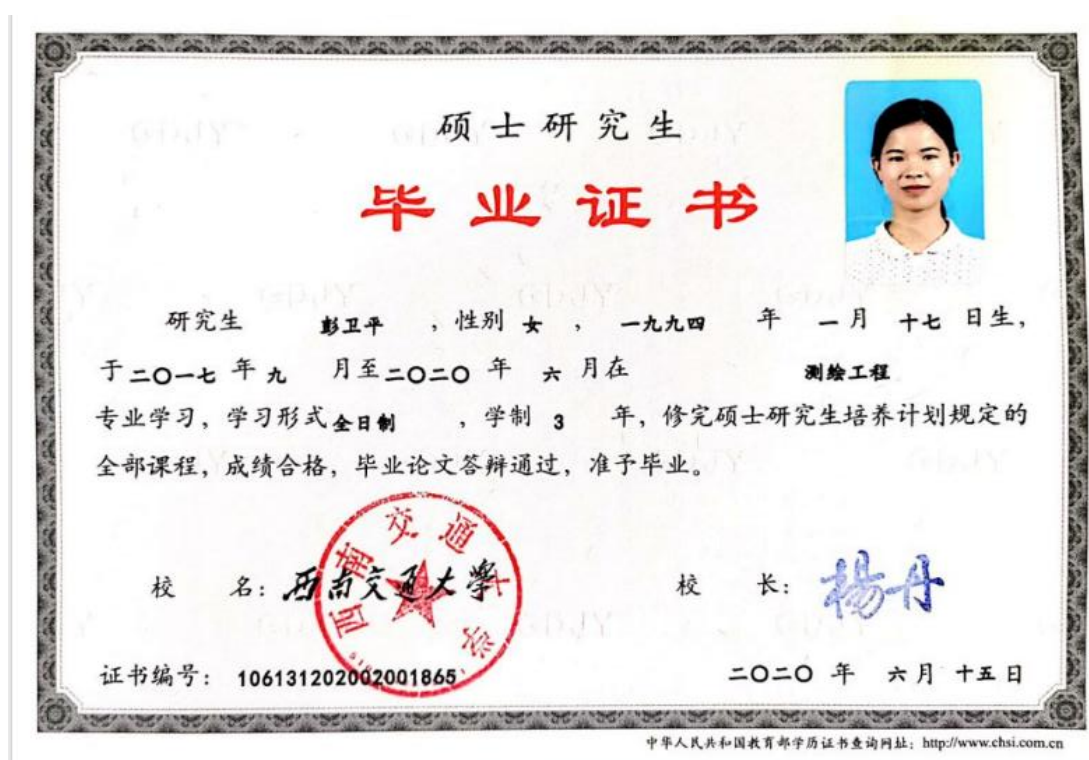 硕士研究生
毕业证书
研究生 彭卫平 ，性别 女 ， 一九九四 年 一月 十七 日生，
于二〇一七 年 九 月至二〇二〇 年 六 月在 测绘工程
专业学习，学习形式全日制 ，学制 3 年，修完硕士研究生培养计划规定的
全部课程，成绩合格，毕业论文答辩通过，准予毕业。
西南交通大学
校 名：西南交通大學 校 长：楊丹
证书编号： 106131202002001865 二〇二〇 年 六月 十五日
中华人民共和国教育部学历证书查询网址：http://www.chsi.com.cn
GDJY